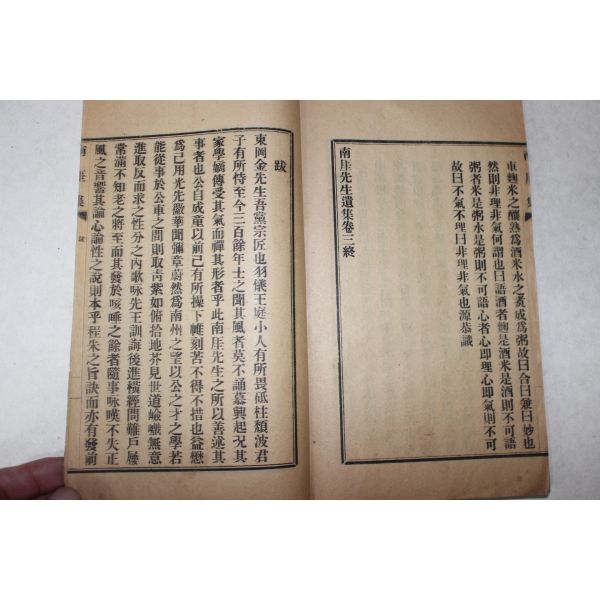 車麯米之釀熟爲酒米水之爻成爲粥故曰合曰兼曰妙也
然則非理非氣何謂也曰語酒者麯是酒米是酒則不可語
粥者米是粥水是粥則不可語心者心卽理心卽氣則不可
故曰不氣不理曰非理非氣也源恭識
南厓先生遺集卷三終
跋
東岡金先生吾黨宗匠也羽儀王庭小人有所畏砥柱頹波君
子有所恃至今三百餘年士之聞其風者莫不誦慕興起況其
家學嫡傳受其氣而禪其形者乎此南厓先生之所以善述其
事者也公自成童以前已有所操下帷刻苦不得不措也益懋
爲己用光先徽華聞彌章蔚然爲南州之望以公之才之學若
能從事於公車之間則取靑紫如俯拾地芥見世道崄巇無意
進取反而求之性分之內歌咏先王訓誨後進橫經問難戶屨
常滿不知老之將至而其發於咳唾之餘者隨事咏嘆不失正
風之音響其論心論性之說則本乎程朱之旨訣而亦有發前
南厓集
跋